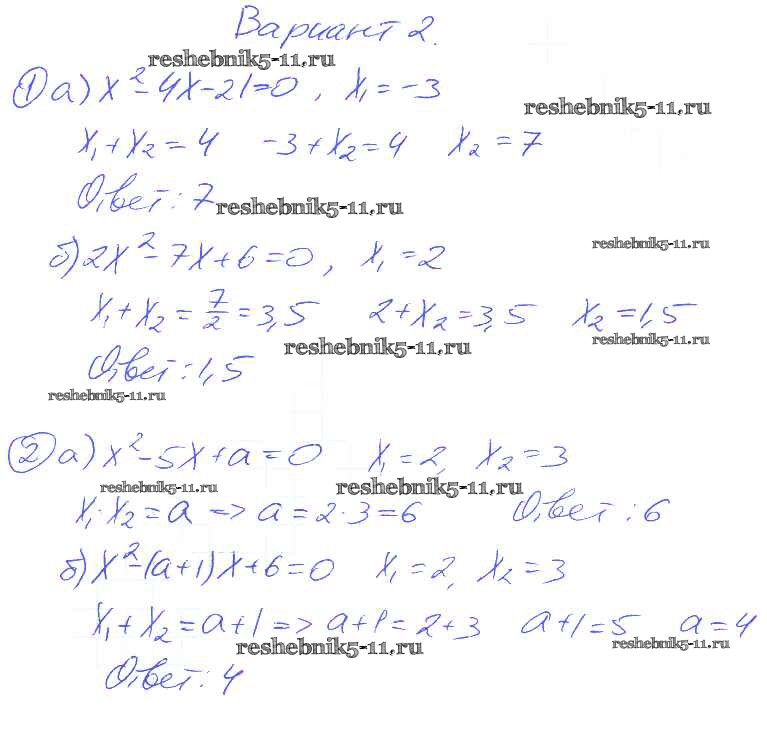 Вариант 2.
reshebnik5-11.ru
① а) x² - 4x - 21 = 0 , x₁ = -3
reshebnik5-11.ru
x₁ + x₂ = 4 -3 + x₂ = 4 x₂ = 7
Ответ : 7
reshebnik5-11.ru
reshebnik5-11.ru
б) 2x² - 7x + 6 = 0 , x₁ = 2
x₁ + x₂ = 7/2 = 3,5 2 + x₂ = 3,5 x₂ = 1,5
reshebnik5-11.ru
reshebnik5-11.ru
Ответ : 1,5
reshebnik5-11.ru
② а) x² - 5x + a = 0 x₁ = 2, x₂ = 3
reshebnik5-11.ru
reshebnik5-11.ru
x₁ · x₂ = a => a = 2 · 3 = 6 Ответ : 6
б) x² - (a + 1) x + 6 = 0 x₁ = 2, x₂ = 3
x₁ + x₂ = a + 1 => a + 1 = 2 + 3 a + 1 = 5 a = 4
reshebnik5-11.ru
reshebnik5-11.ru
Ответ : 4